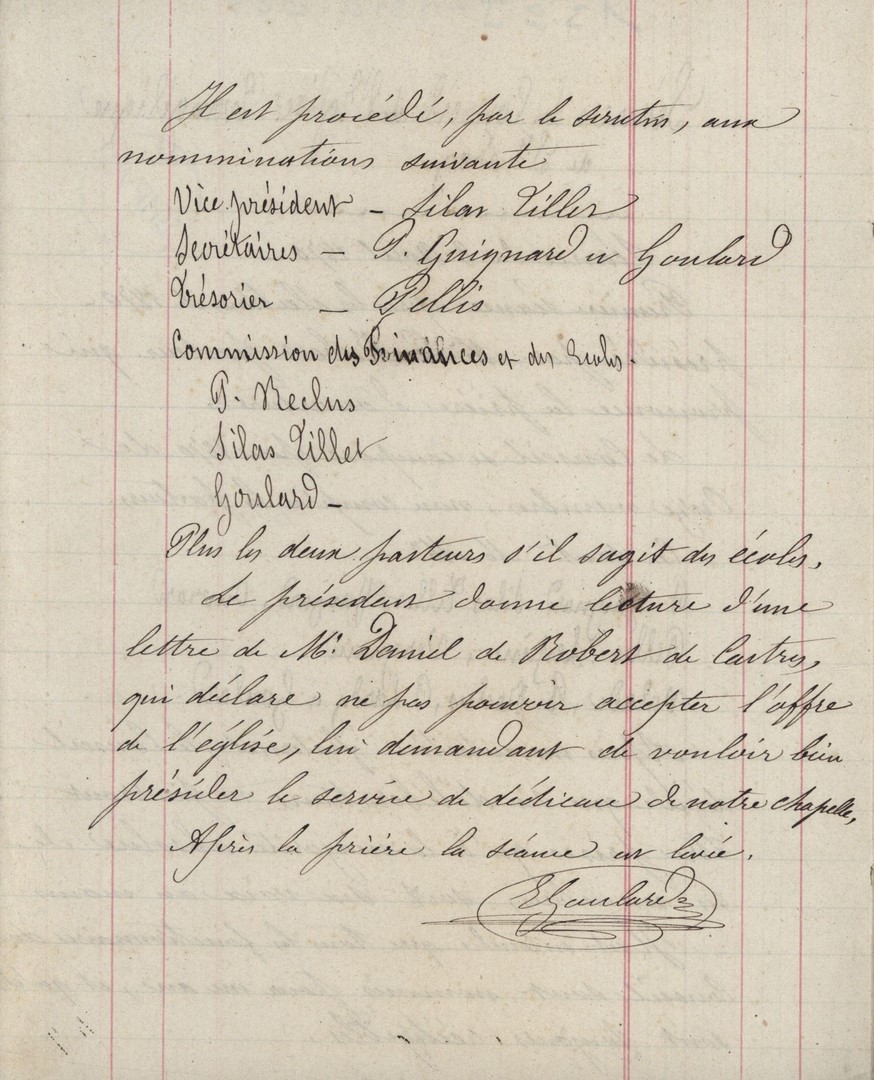 Il est procédé, par le scrutin, aux
nomminations suivante
Vice président - Silas Tillet
Secrétaires - P. Guignard et Goulard
Trésorier - Pellis
Commission des Finances et des Ecoles.
P. Reclus
Silas Tillet
Goulard -
Plus les deux pasteurs s'il sagit des écoles.
Le président donne lecture d'une
lettre de Mr. Daniel de Robert de Castres,
qui déclare ne pas pouvoir accepter l'offre
de l'église, lui demandant de vouloir bien
présider le service de dédicace de notre chapelle,
Après la prière la séance est levée.
E Goulard